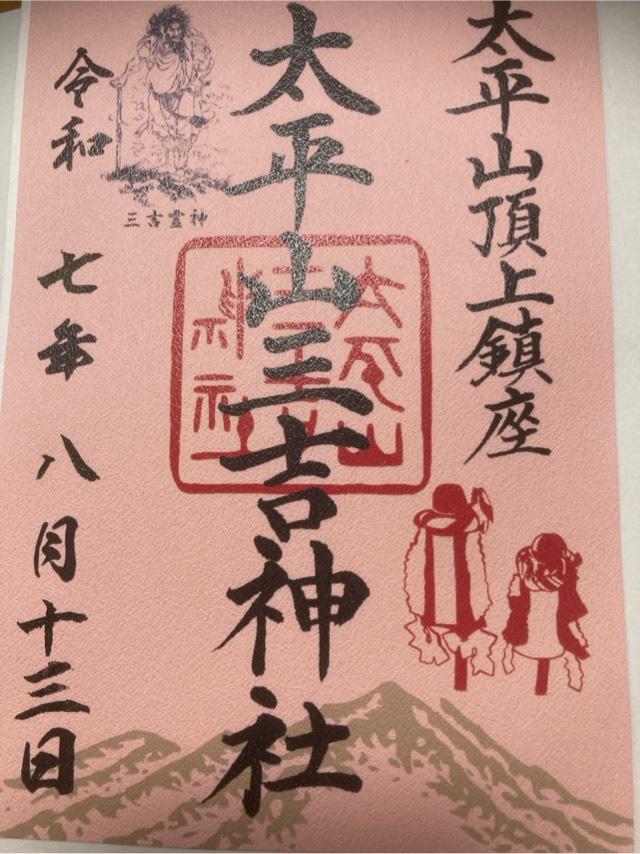 太平山頂上鎮座
太平山三吉神社
太平山
三吉山
神社
三吉霊神
令和七年八月十三日